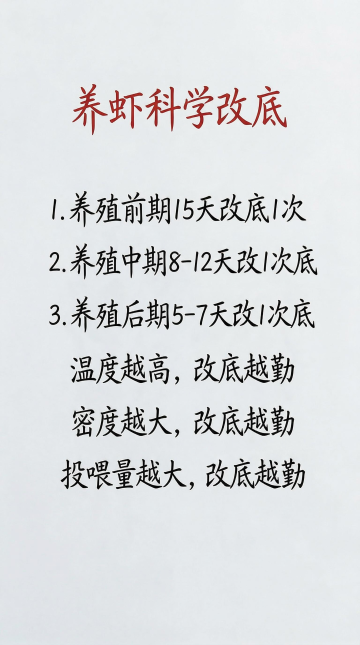 养虾科学改底
1.养殖前期15天改底1次
2.养殖中期8-12天改1次底
3.养殖后期5-7天改1次底
温度越高，改底越勤
密度越大，改底越勤
投喂量越大，改底越勤